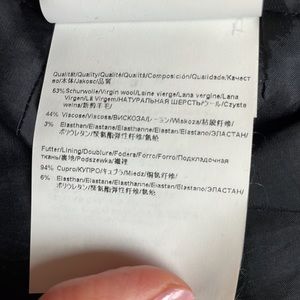 Qualität/Quality/Qualité/Qualità/Composición/Qualidade/Качест
во/本体/Jakość/品質
53% Schurwolle/Virgin wool/Laine vierge/Lana vergine/Lana
Virgen/Lã Virgem/НАТУРАЛЬНАЯ ШЕРСТЬ/ウール/Czysta
wełna/新剪羊毛/
44% Viscose/Viscosa/ВИСКОЗА/レーヨン/Wiskoza/粘胶纤维/
3% Elasthan/Elastane/Elasthanne/Elastan/Elastano/ЭЛАСТАН/
ポリウレタン/聚氨酯弹性纤维/氨纶
Futter/Lining/Doublure/Fodera/Forro/Forro/Подкладочная
ткань/裏地/Podszewka/衬里
94% Cupro/КУПРО/キュプラ/Miedź/铜氨纤维/
6% Elasthan/Elastane/Elasthanne/Elastan/Elastano/ЭЛАСТАН/
ポリウレタン/聚氨酯弹性纤维/氨纶